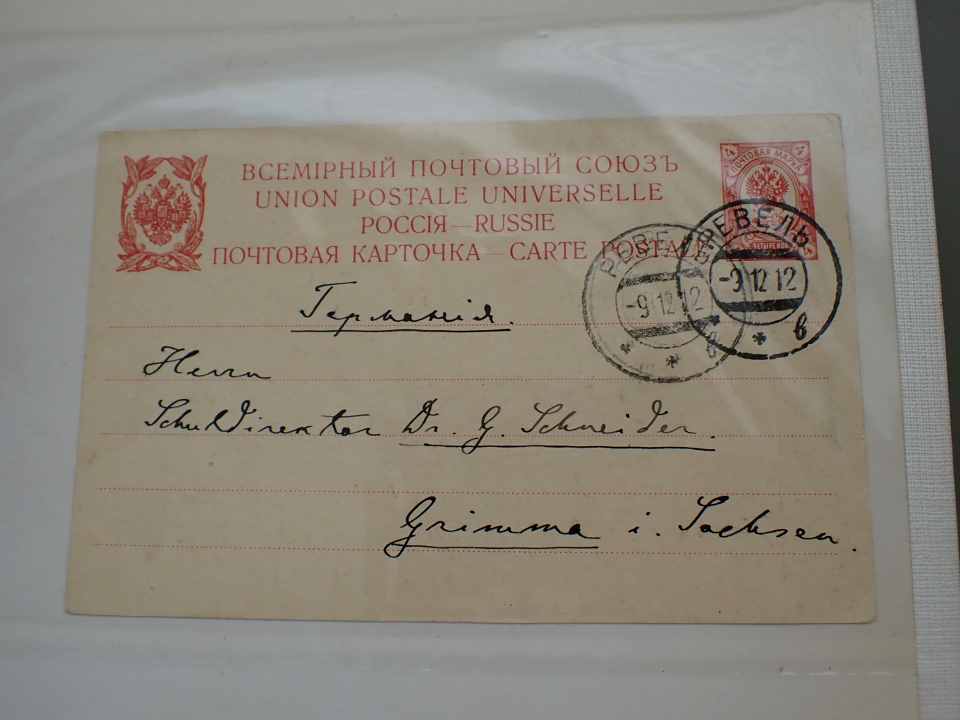 ВСЕМІРНЫЙ ПОЧТОВЫЙ СОЮЗЪ
UNION POSTALE UNIVERSELLE
РОССІЯ—RUSSIE
ПОЧТОВАЯ КАРТОЧКА—CARTE POSTALE
4 4
ПОЧТОВАЯ МАРКА
РЕВЕЛЬ
-9 12 12
в
РЕВЕЛЬ
-9 12 12
в
Германія.
Herrn
Schuldirektor Dr. G. Schneider.
Grimma i. Sachsen.